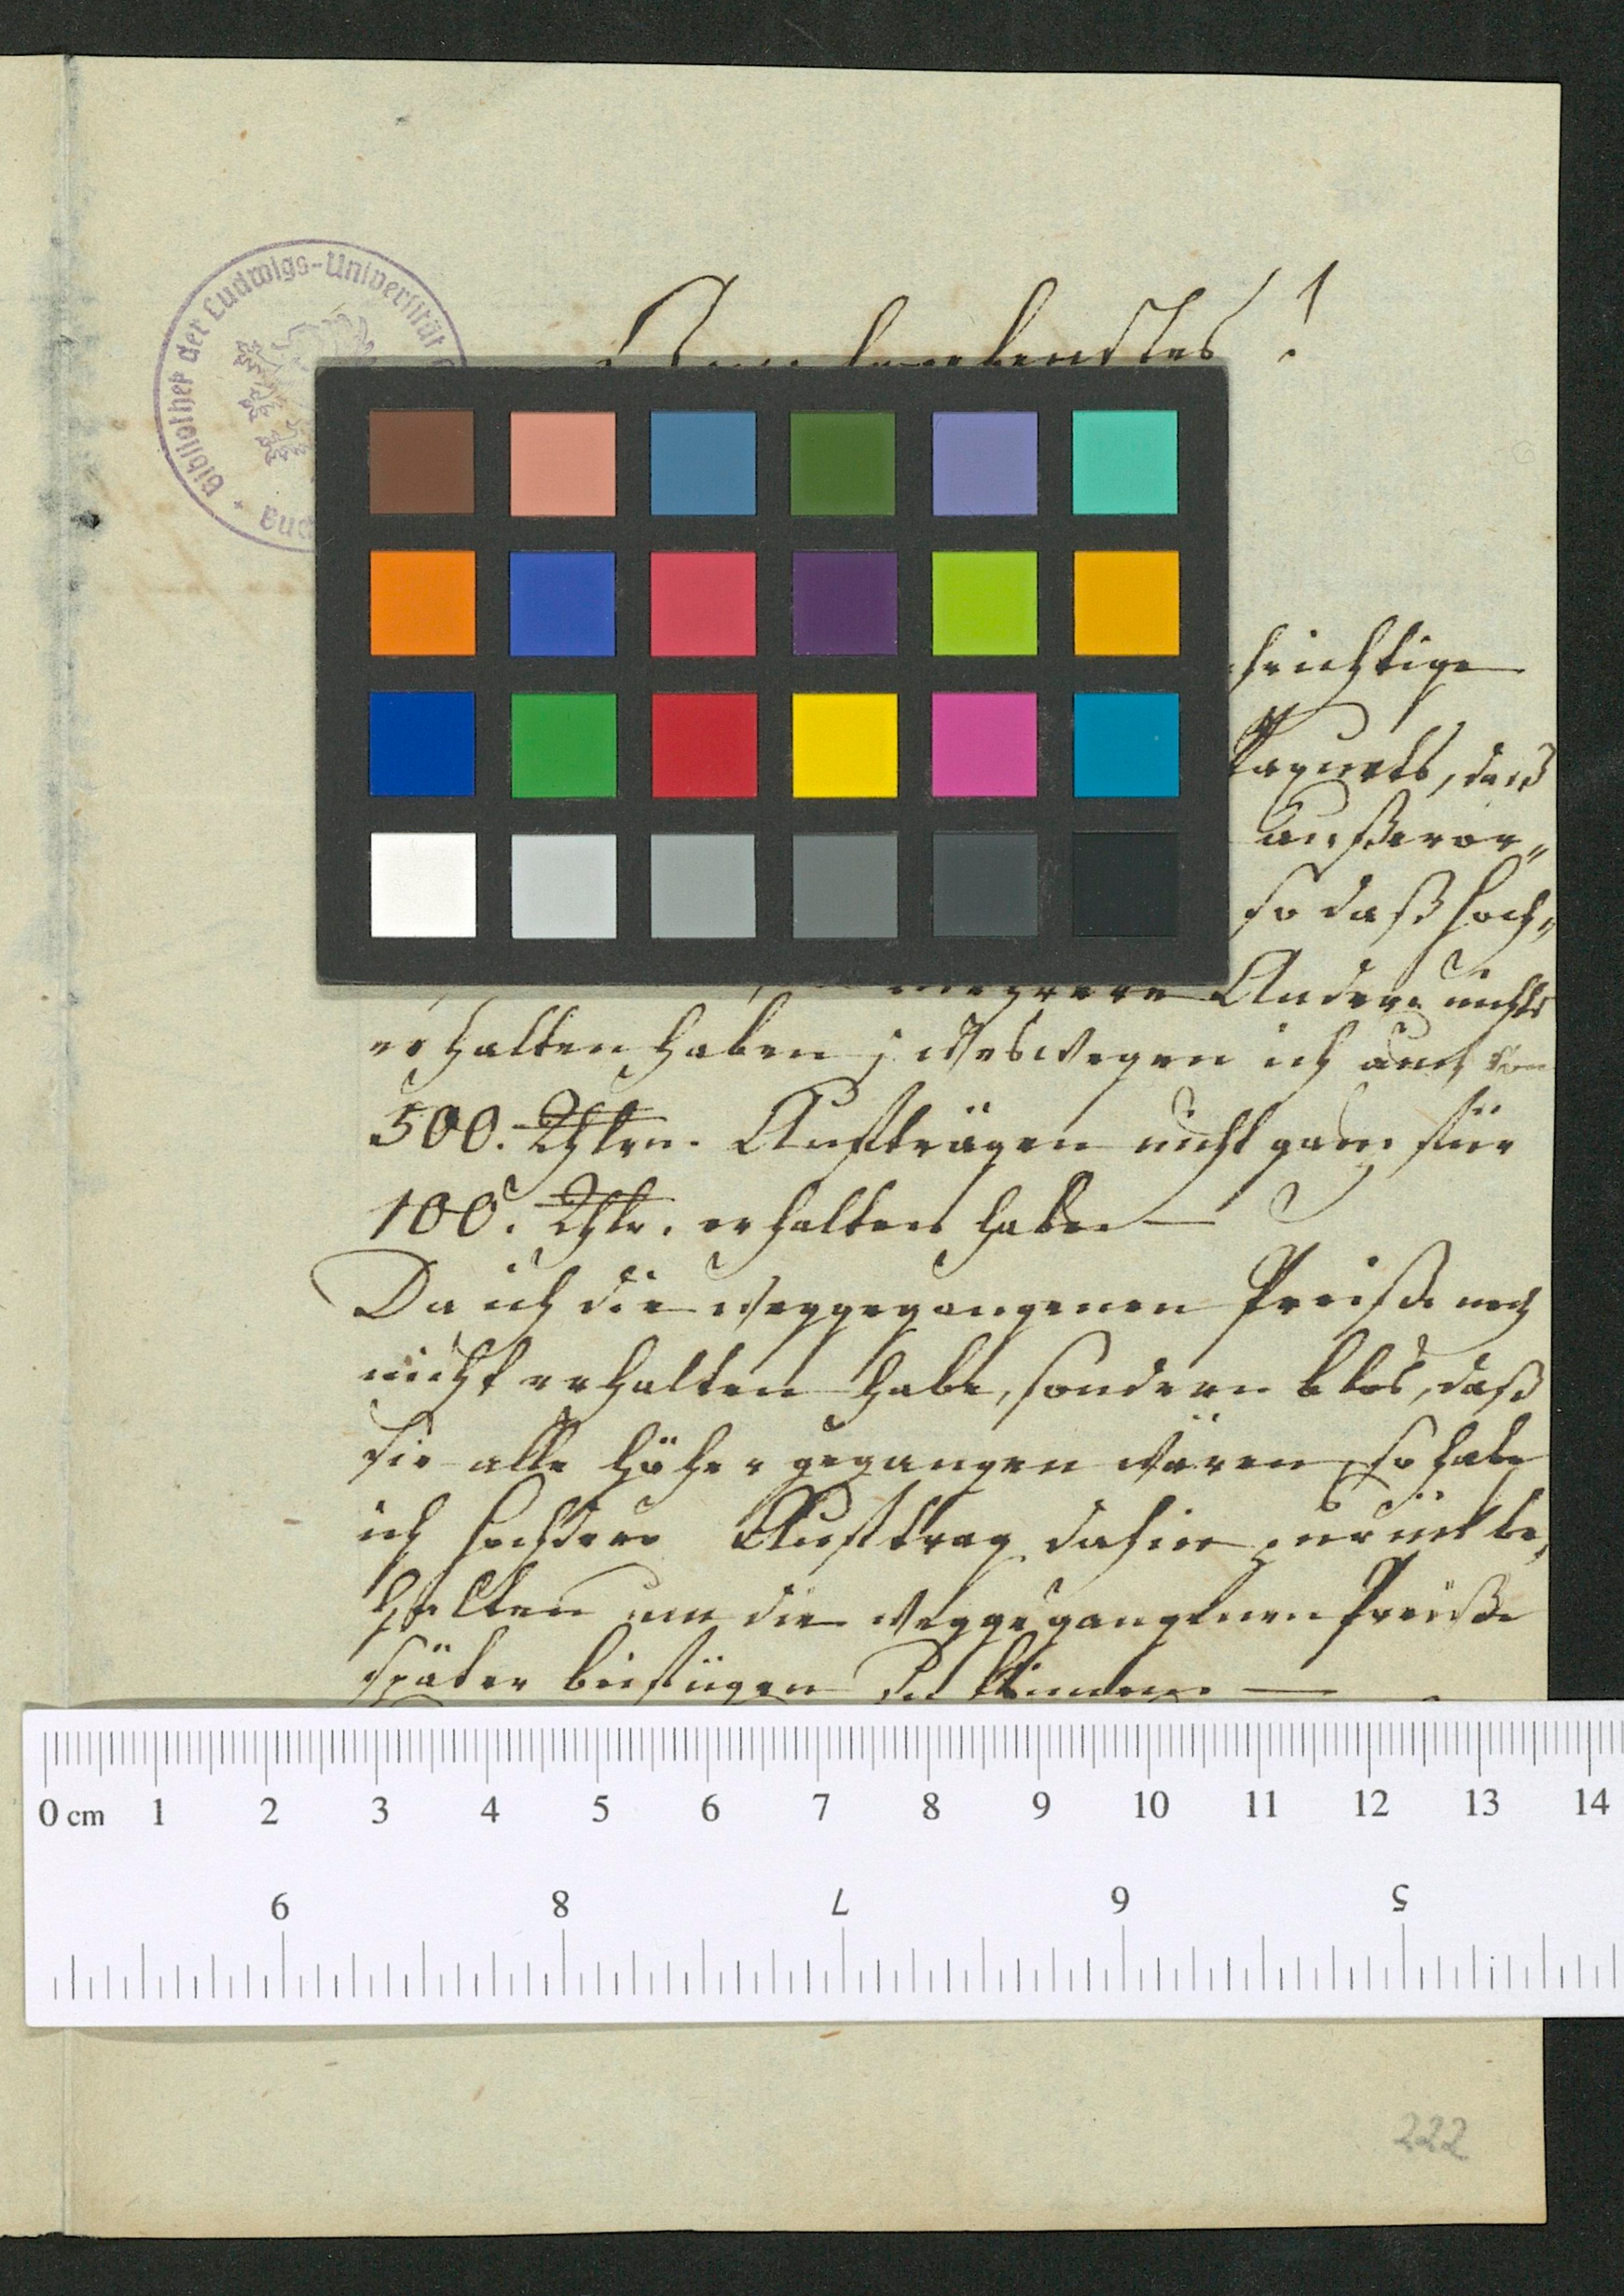 Bibliothek der Ludwigs-Universität
!
Paquets, daß
außeror„
so daß Hoch„
mehrere Andere nichts
erhalten haben; weswegen ich auch von
500. Thlrn. Aufträgen nicht ganz für
100. Thlr. erhalten habe —
Da ich die weggegangenen Preiße noch
nicht erhalten habe, sondern blos, daß
sie alle höher gegangen wären, so habe
ich Hochdero Aufttrag dahier zurückbe„
halten um die weggegangenen Preiße
später beifügen zu können. —
0 cm 1 2 3 4 5 6 7 8 9 10 11 12 13 14
9 8 7 6 5
222